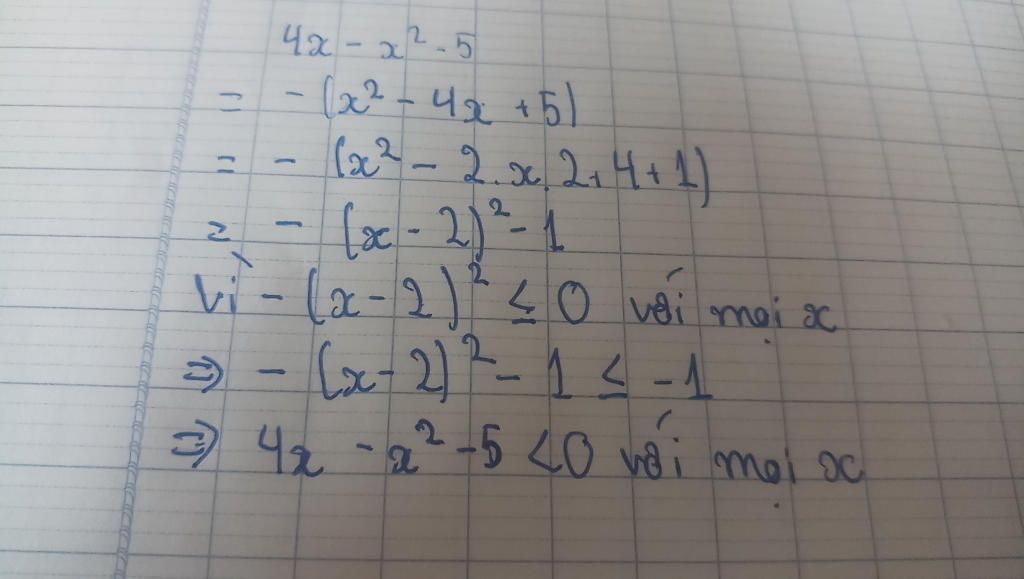 4x - x² - 5
= - (x² - 4x + 5)
= - (x² - 2.x.2 + 4 + 1)
= - (x - 2)² - 1
Vì - (x - 2)² ≤ 0 với mọi x
⇒ - (x - 2)² - 1 ≤ -1
⇒ 4x - x² - 5 < 0 với mọi x